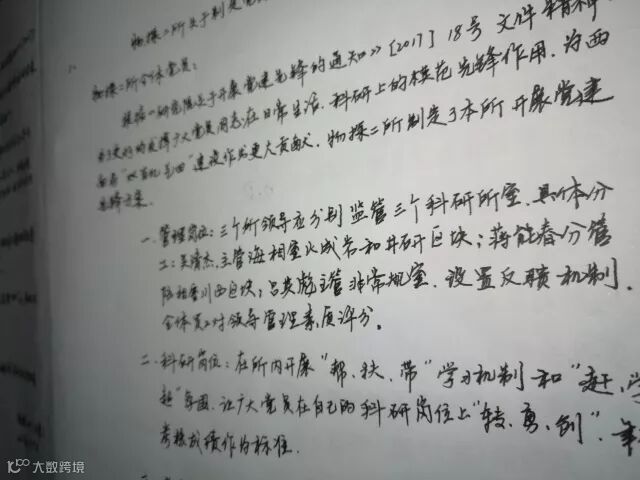 物探二所关于制定党
物探二所全体党员：
根据《研究院关于开展党建先锋的通知》[2017] 18号 文件精神
为了更好的发挥广大党员同志在日常生活、科研上的模范先锋作用，为西
南局"双百亿气田"建设作出更大贡献，物探二所制定了本所开展党建
先锋方案。
一、管理岗位：三个所领导应分别监管三个科研所室，具体分
工：吴清杰主管海相室 和井研区块；蒋能春分管
陆相室川西区块；吕其彪主管非常规室。设置反馈机制，
全体员工对领导管理素质评分。
二、科研岗位：在所内开展"帮、扶、带"学习机制和"赶、学
超"氛围，让广大党员在自己的科研岗位上"转、勇、创"，年
考核成绩作为标准。
大数跨境